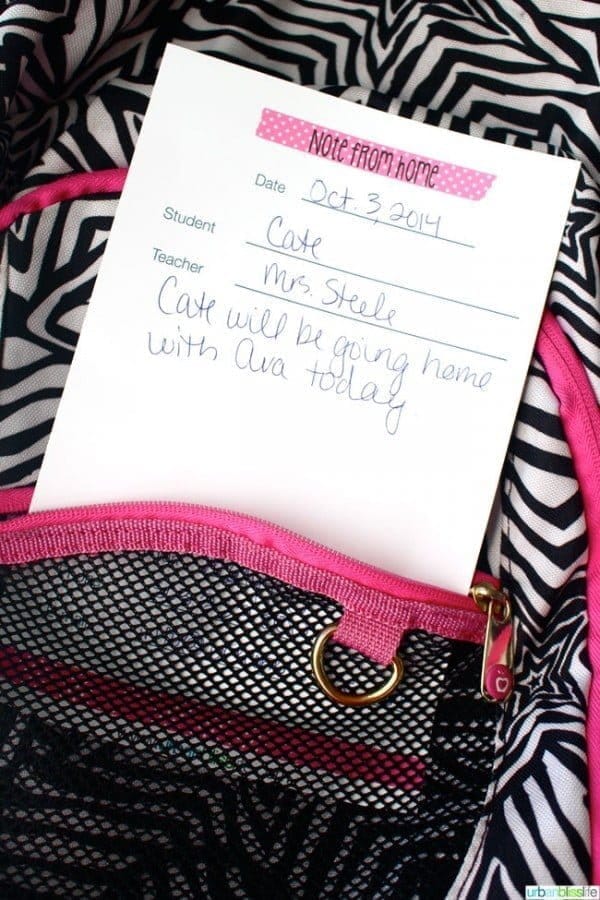 Note from home
Date Oct. 3, 2014
Student Cate
Teacher Mrs. Steele
Cate will be going home
with Ava today
urbanblisslife